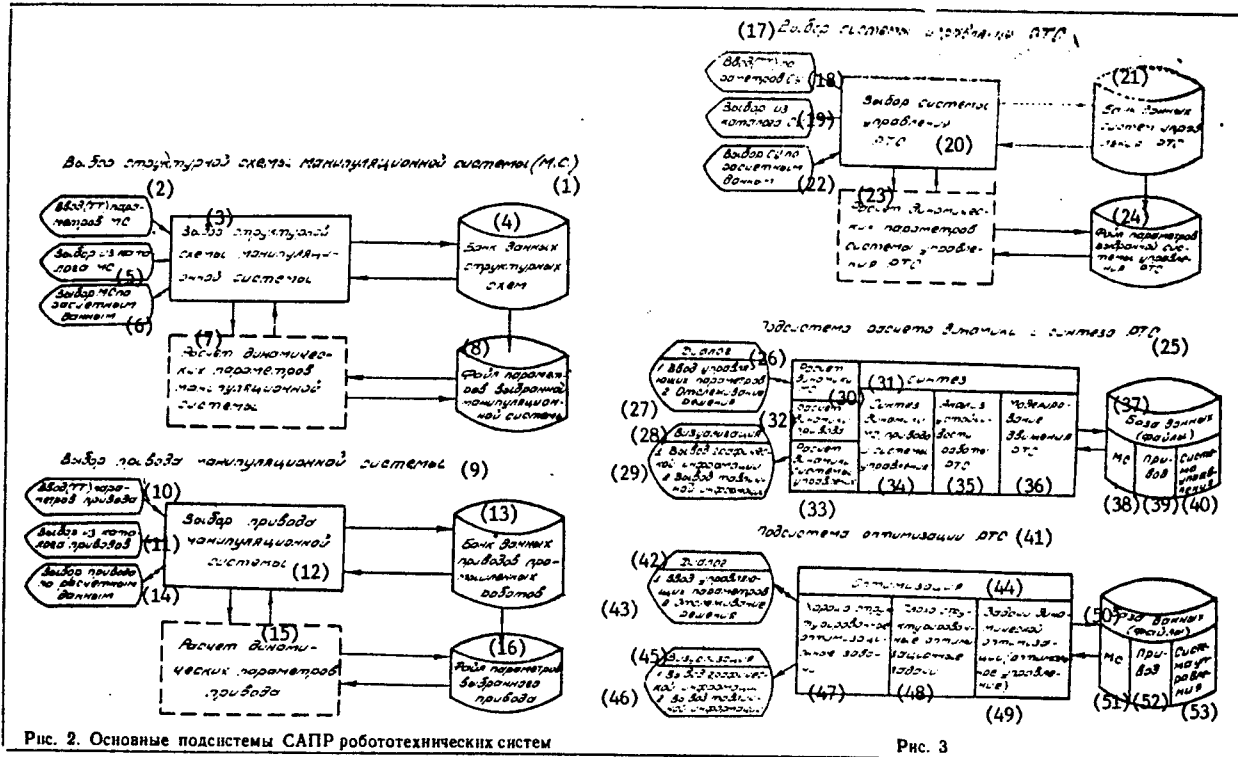 Выбор структурной схемы манипуляционной системы (М.С.)
(1)
(2)
Ввод (ТТ) пара-
метров МС
(3)
Выбор структурной
схемы манипуляци-
онной системы
(4)
Банк данных
структурных
схем
Выбор из ката-
лога МС
(5)
Выбор МС по
расчетным
данным
(6)
(7)
Расчет динамичес-
ких параметров
манипуляционной
системы
(8)
Файл парамет-
ров выбранной
манипуляцион-
ной системы
Выбор привода манипуляционной системы (9)
Ввод (ТТ) пара-
метров привода
(10)
Выбор из ката-
лога приводов
(11)
Выбор привода
манипуляционной
системы
(12)
(13)
Банк данных
приводов про-
мышленных
роботов
Выбор привода
по расчетным
данным
(14)
(15)
Расчет динами-
ческих параметров
привода
(16)
Файл параметров
выбранного
привода
Рис. 2. Основные подсистемы САПР робототехнических систем
(17) Выбор системы управления РТС
Ввод (ТТ) па-
раметров СУ
(18)
Выбор из
каталога СУ
(19)
Выбор системы
управления
РТС
(20)
(21)
Банк данных
систем управ-
ления РТС
Выбор СУ по
расчетным
данным
(22)
(23)
Расчет динамичес-
ких параметров
системы управле-
ния РТС
(24)
Файл параметров
выбранной сис-
темы управле-
ния РТС
Подсистема расчета динамики и синтеза РТС
(25)
Диалог
(26)
1 Ввод управля-
ющих параметров
2 Отслеживание
решения
(27)
(28)
Визуализация
1 Вывод графичес-
кой информации
2 Вывод таблич-
ной информации
(29)
Расчет
динамики
МС
(30)
(31)
Синтез
(32)
Расчет
динамики
привода
Расчет
динамики
системы
управления
(33)
Синтез
динамики
МС, привода
и системы
управления
(34)
Анализ
устойчи-
вости
работы
РТС
(35)
Моделиро-
вание
движения
РТС
(36)
(37)
База данных
(файлы)
МС
(38)
При-
вод
(39)
Систе-
ма
управле-
ния
(40)
Подсистема оптимизации РТС (41)
(42)
Диалог
1 Ввод управляю-
щих параметров
2 Отслеживание
решения
(43)
Оптимизация
(44)
(45)
Визуализация
1 Вывод графичес-
кой информации
2 Вывод таблич-
ной информации
(46)
Хорошо струк-
турированные
оптимизаци-
онные зада-
чи
(47)
Слабо струк-
турирован-
ные оптими-
зационные
задачи
(48)
Задачи дина-
мической
оптимиза-
ции (оптималь-
ное управле-
ние)
(49)
(50)
База данных
(файлы)
МС
(51)
При-
вод
(52)
Систе-
ма уп-
равле-
ния
(53)
Рис. 3